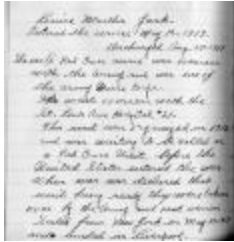 Louise Martha Funk.
Entered the service May 17-1917.
Discharged Aug. 10-1919
She was a Red Cross nurse was overseas
with the army and was one of
the army nurse corps.
She went overseas with the
St. Louis Base Hospital #21.
This unit was organized in 1916
and was waiting to be called as
a Red Cross Unit. Before the
United States entered the war
When war was declared that
unit being ready they were taken
over by the army and sent overseas
Sailed from New York on May
and landed in Liverpool.